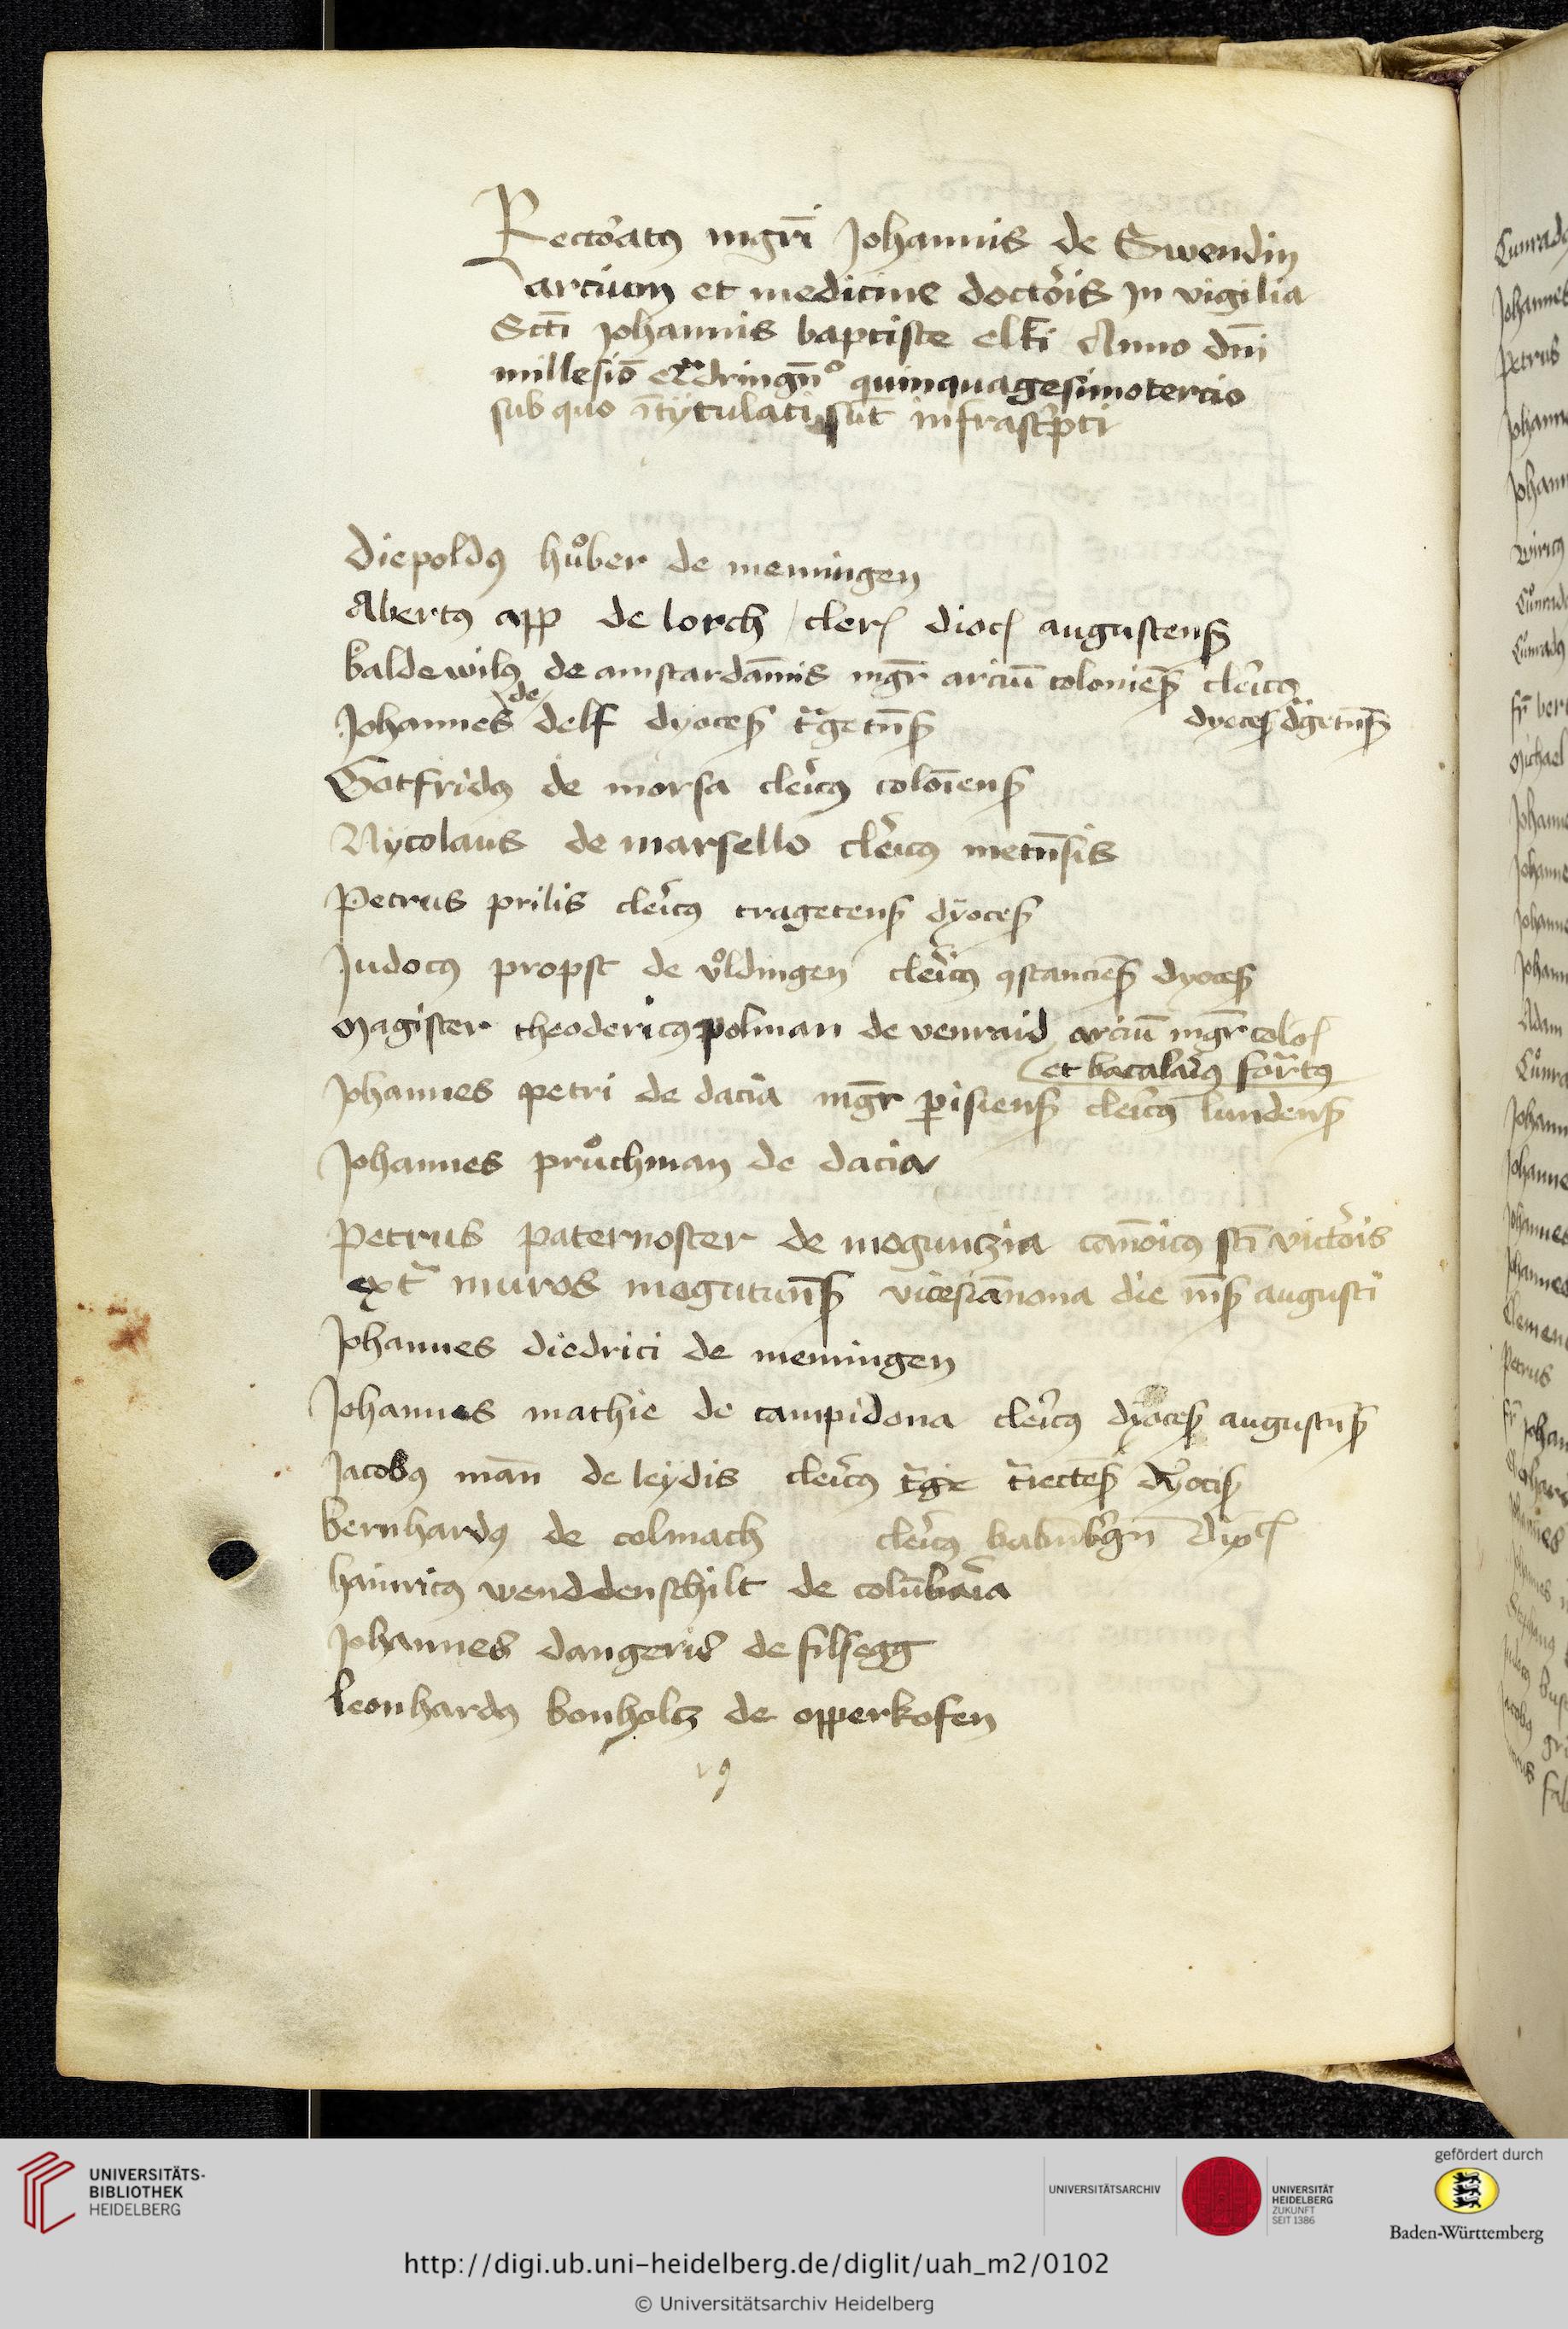 Rectoratus mgr̄i Johannis de Swendin
arcium et medicine doctoris in vigilia
Sct̄i Johannis baptiste elt̄i Anno dn̄i
millesiō qͣdringn̄º quinquagesimotercio
sub quo ītytulati sūt infrascͥpti
Diepoldꝯ hůber de memingen
Abertꝯ app de lorch cler dioc augustens̄
baldewinꝯ de amstardāmis mgr̄ arciū coloniēs̄ clericꝯ
dyoces̄ dͣgetn̄s̄
Johannes \de/ delf dyoces̄ tͣgetn̄s̄
Gotfridꝯ de morsa clericꝯ coloīens̄
Nycolaus de marsello clericꝯ metn̄sis
Petrus prilis clericꝯ tragetens̄ dyoces̄
Judocꝯ propst de vͦldingen clericꝯ ꝯstanciēs̄ dyoces̄
Magister theodericꝯ polman de venraid arciū mgr̄ colo
et bacalariꝯ forͣtꝯ
Johannes petri de dacia mgr̄ ꝑisiens̄ clericꝯ lundens̄
Johannes průchman de dacia
Petrus paternoster de moguntzia canōicꝯ sct̄i victoris
extͣ muros mogutun̄s̄ vicesiānona die mēs̄ augusti
Johannes diedrici de memingen
Johannes mathie de campidona clericꝯ dyoces̄ augustn̄s̄
Jacobꝯ man̄ de leydis clericꝯ tͣge tͣiectēs̄ dyocis̄
bernhardꝯ de colmach clericꝯ babn̄bͤgn̄ dioc
hainricꝯ wenddenschilt de colūbaria
Johannes dangeris de filsegg
leonhardꝯ bonholtz de opperkofen
UNIVERSITÄTS-
BIBLIOTHEK
HEIDELBERG
UNIVERSITÄTSARCHIV
UNIVERSITÄT
HEIDELBERG
ZUKUNFT
SEIT 1386
gefördert durch
Baden-Württemberg
http://digi.ub.uni-heidelberg.de/diglit/uah_m2/0102
© Universitätsarchiv Heidelberg